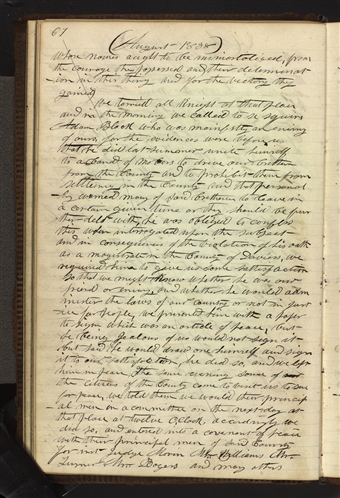 67
(August 1838)
whose names aught to be immortalised, from
the courage they possessed and their determinat
ion in this thing and for the victory they
gained
We tarried all knight at that place
and in the morning we called to se squire
Adam Black who was manifestly an enemy
of ours, for the evidences ware before us
that he did last summer unite himself
to a band of Mobers to drive our Brethren
from the County and to prohibit them from
settleing in the County and that personal
ly warned many of said Brethren to leave in
a certain given time or they should be
this debt with he was obliged to confess
this when interrogated upon the subject
and in consequence of the violation of his oath
as a magistrate in the County of Daviess, we
required him to give us some satisfaction
so that we might know whether he was our
friend or enemy, and whether he would adm
minister the laws of our country or not in just
ice for people, we presented him with a paper
to sign which was an article of peace, but
he being jealous of us would not sign it
but said he would draw one himself and sign
it to our satisfaction, he did so, and we left
him in peace, The same evening some of
the citizens of the County came to visit us to sue
for peace, we told them we would their princip
al men on a committee on the next day at
that place at twelve O,clock, accordingly we
did so, and entered into a covenant of peace
with their principal men of said County
for inst Judge Morin Mr Williams Mr
Turner Mr Rogers and many others